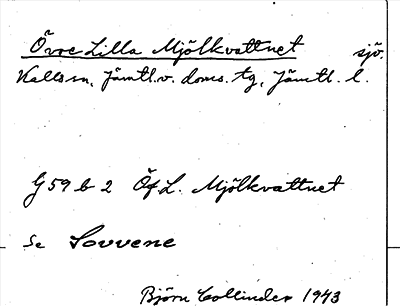 Övre Lilla Mjölkvattnet sjö.
Kalls sn, Jämtl. v. doms. tg, Jämtl. l.
G 59 b 2 Öf L. Mjölkvattnet
Se Sovvene
Björn Collinder 1943